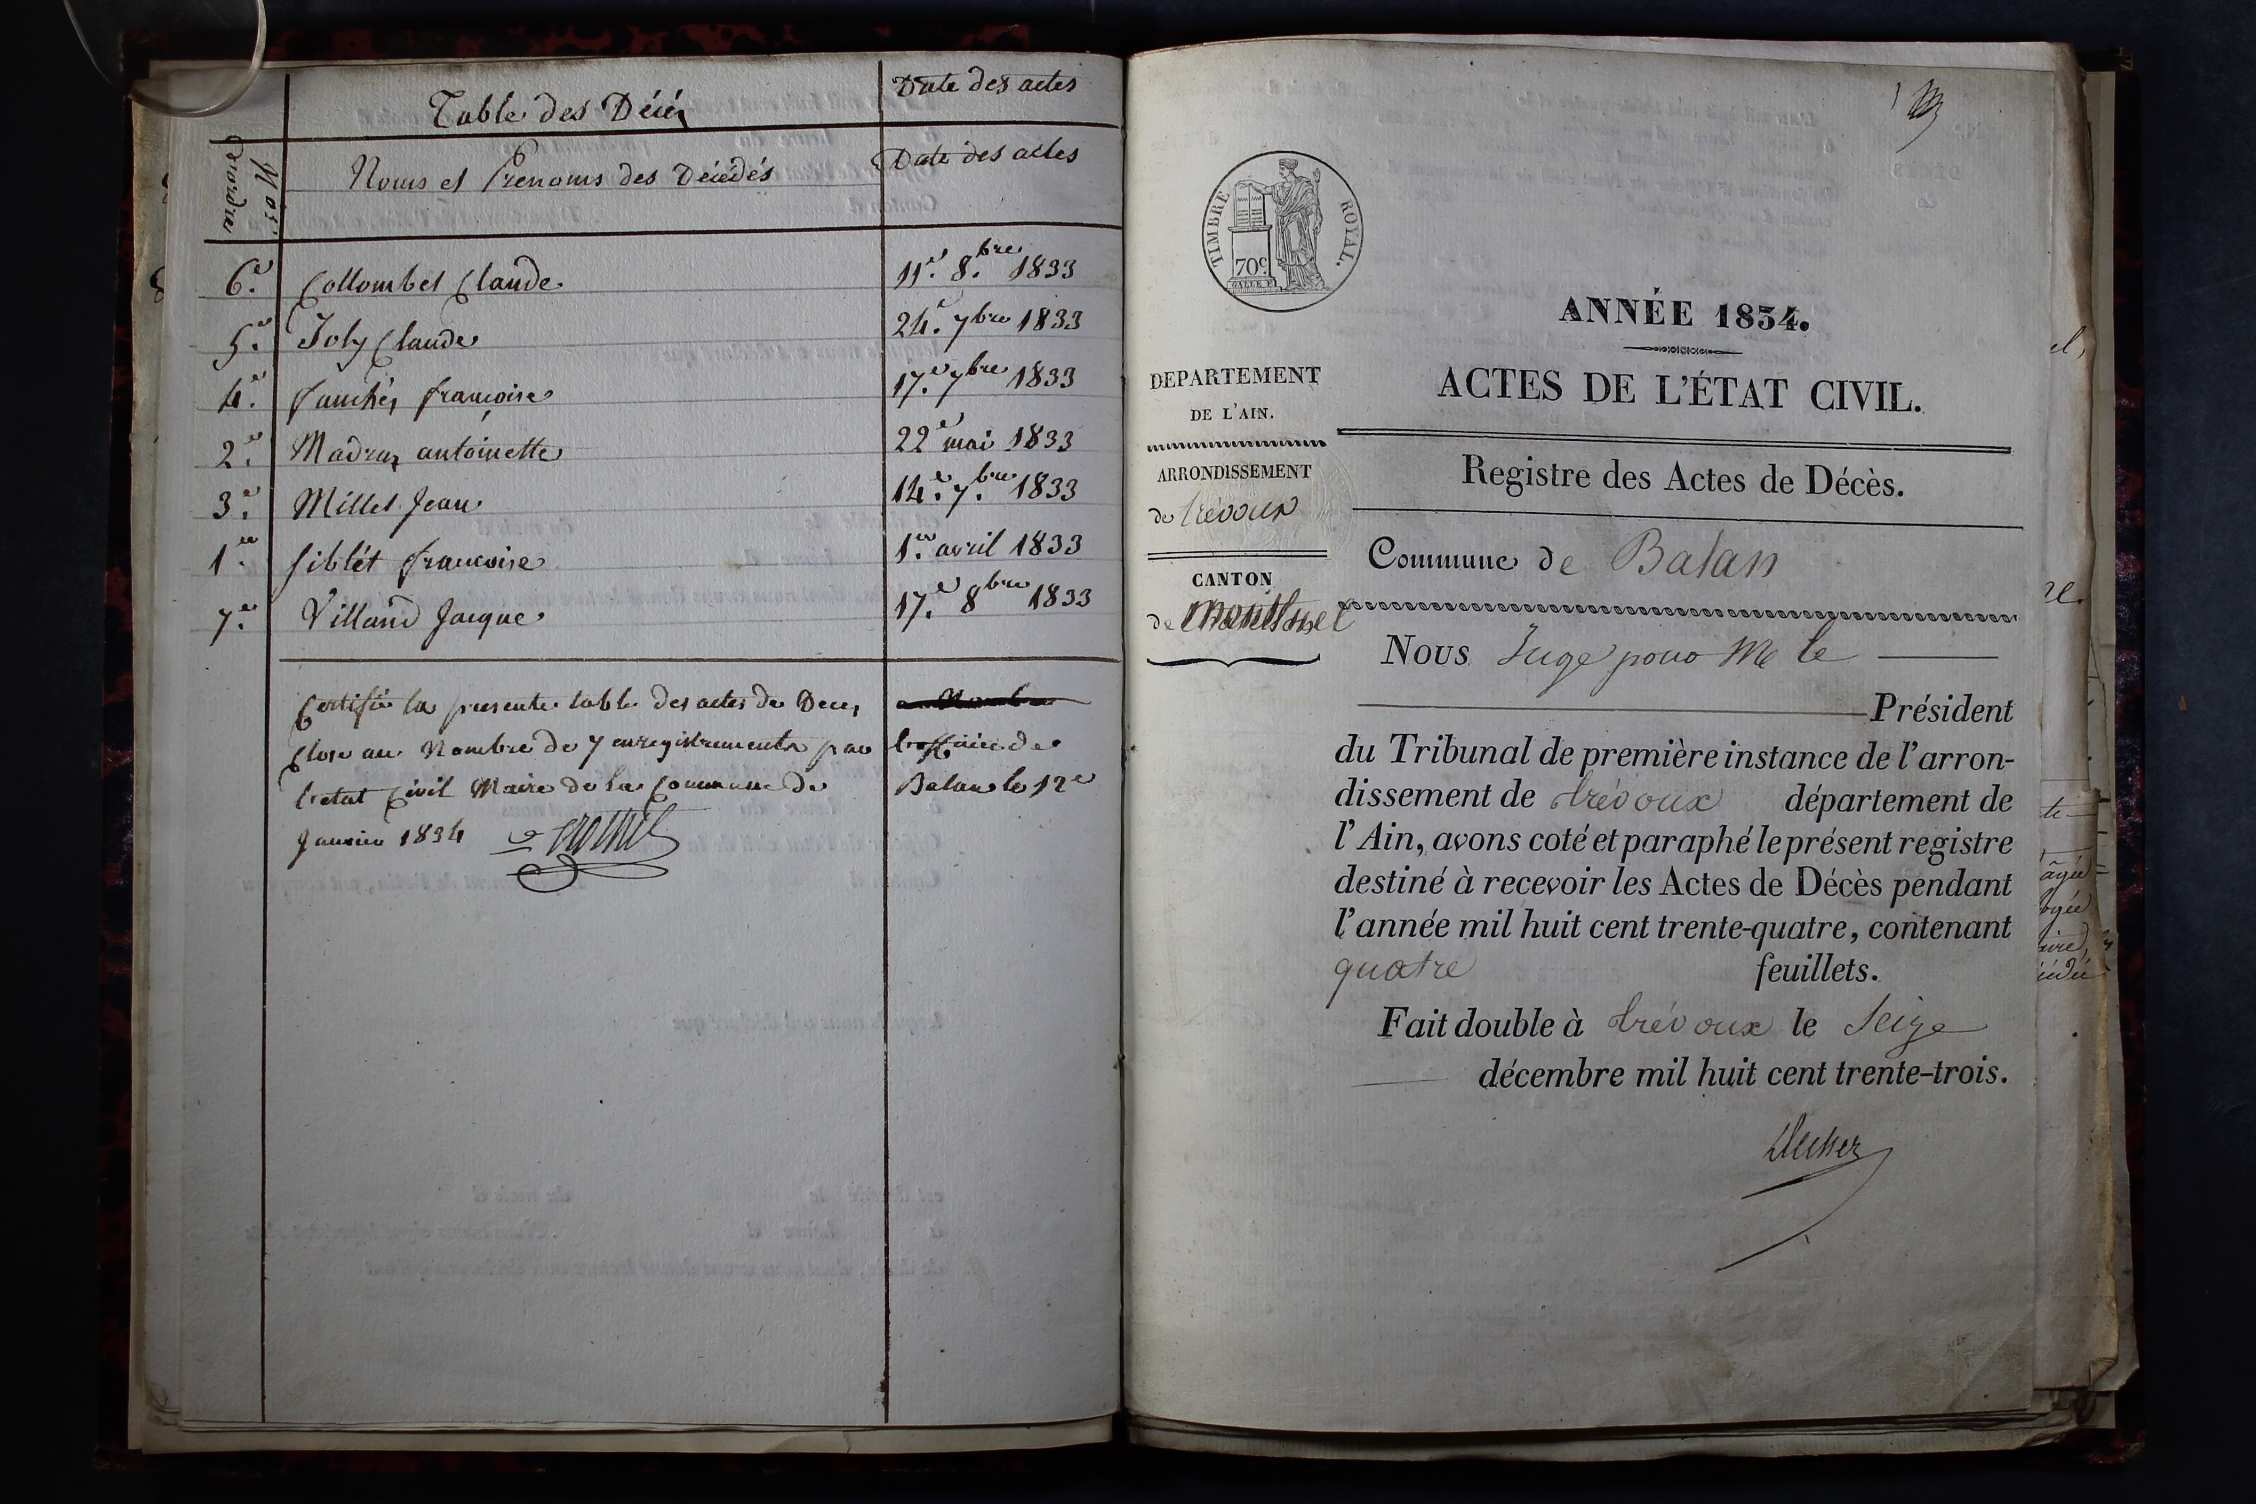 Table des Décés
Date des actes
Nos. d'ordre
Noms et Prenoms des Décédés
Date des actes
6e. Collombet Claude 11e. 8.bre 1833
5e. Joly Claude 24e. 7bre 1833
4e. Françoise 17.e 7bre 1833
2e. Madraz antoinette 22e mai 1833
3e. Millet Jean 14.e 7.bre 1833
1er. Siblét françoise 1.er avril 1833
7e. Villand Jacque 17.e 8bre 1833
Certifié la presente table des actes de Deces
Close au Nombre de 7 enregistrements par l'officier de
l'etat Civil Maire de la Commune de Balan le 12e
Janvier 1834
1
TIMBRE ROYAL.
70c
ANNÉE 1834.
ACTES DE L'ÉTAT CIVIL.
DEPARTEMENT
DE L'AIN.
ARRONDISSEMENT
de Trévoux
CANTON
de Montluel
Registre des Actes de Décès.
Commune de Balan
Nous Juge pour Mr le
Président
du Tribunal de première instance de l'arron-
dissement de trévoux département de
l'Ain, avons coté et paraphé le présent registre
destiné à recevoir les Actes de Décès pendant
l'année mil huit cent trente-quatre, contenant
quatre feuillets.
Fait double à trévoux le Seize
décembre mil huit cent trente-trois.